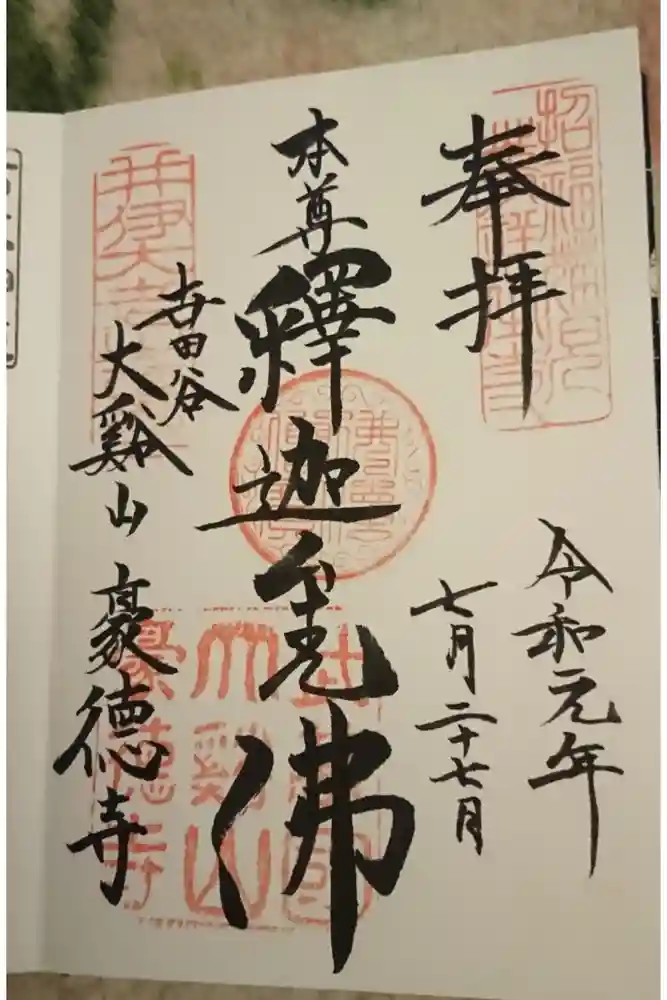 奉拝
令和元年
七月二十七月
本尊
釋迦牟尼佛
世田谷
大谿山 豪徳寺
大谿山
豪徳寺